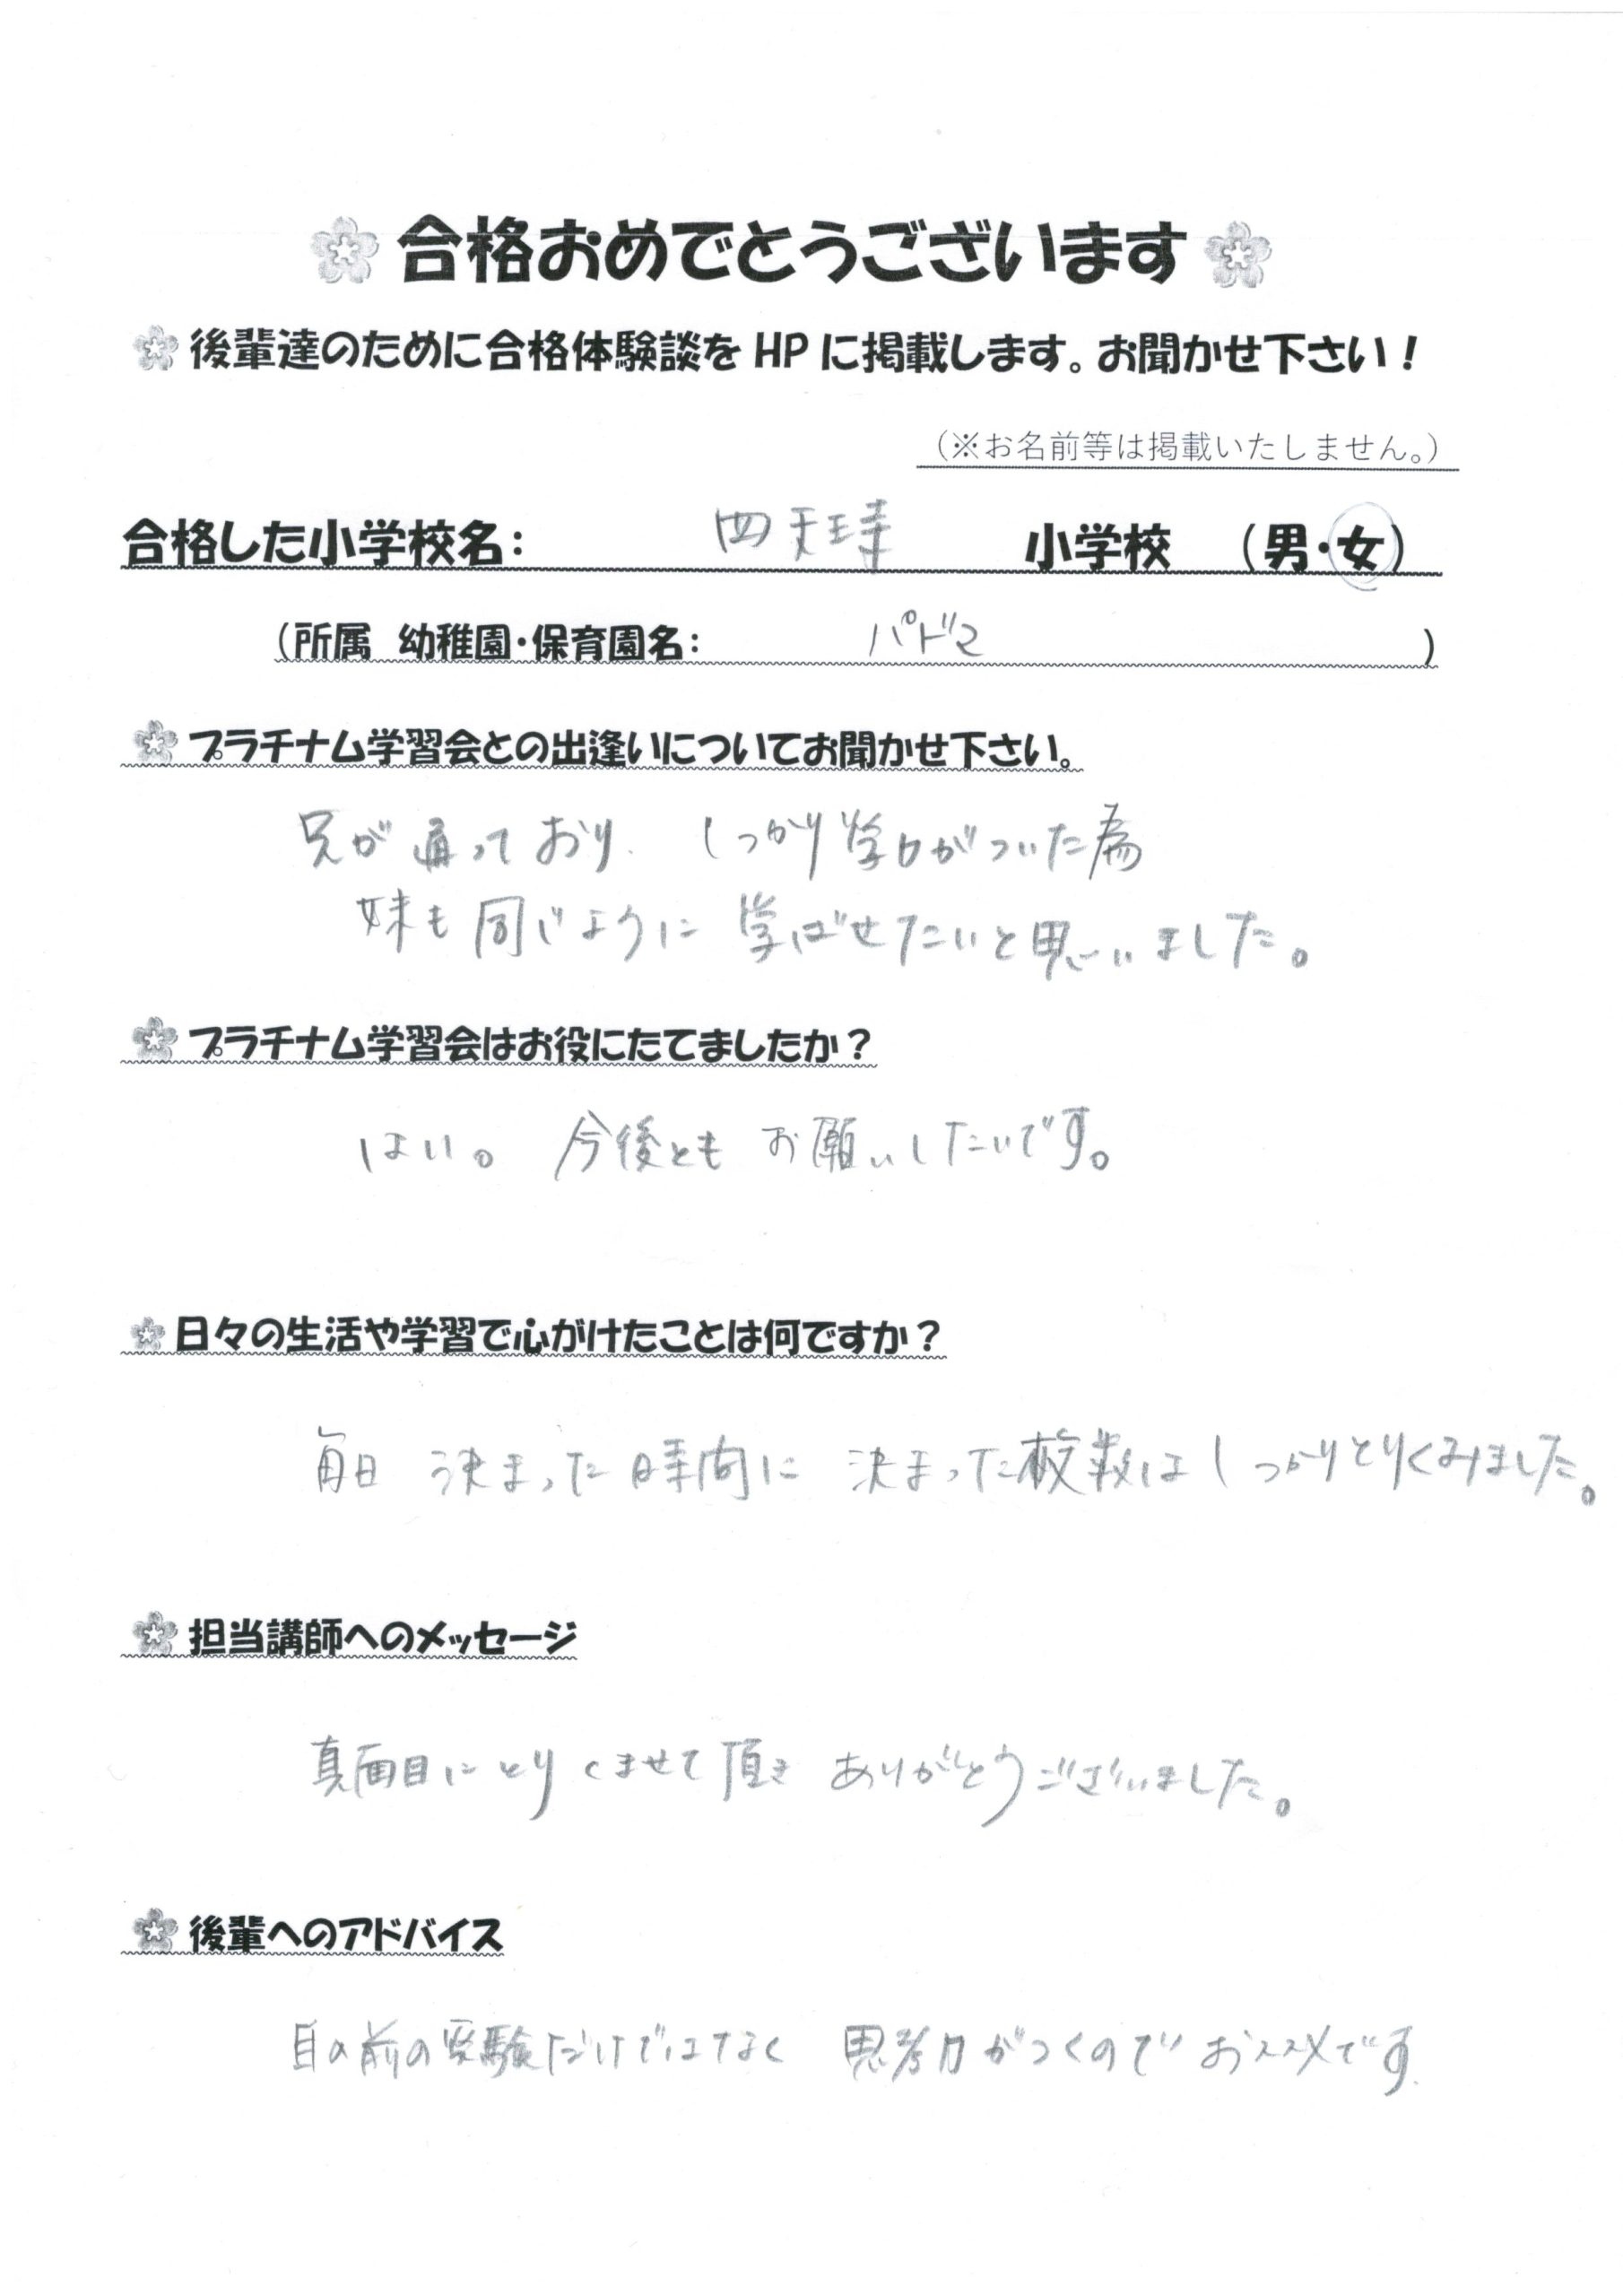 合格おめでとうございます
後輩達のために合格体験談をHPに掲載します。お聞かせ下さい！
（※お名前等は掲載いたしません。）
合格した小学校名： 四天王寺 小学校 （男・女）
（所属 幼稚園・保育園名： パドマ ）
プラチナム学習会との出逢いについてお聞かせ下さい。
兄が通っており、しっかり学力がついた為
妹も同じように学ばせたいと思いました。
プラチナム学習会はお役にたてましたか？
はい。今後ともお願いしたいです。
日々の生活や学習で心がけたことは何ですか？
毎日 決まった時間に 決まった枚数はしっかりとりくみました。
担当講師へのメッセージ
真面目にとりくませて頂き ありがとうございました。
後輩へのアドバイス
目の前の受験だけではなく 思考力がつくので おススメです.